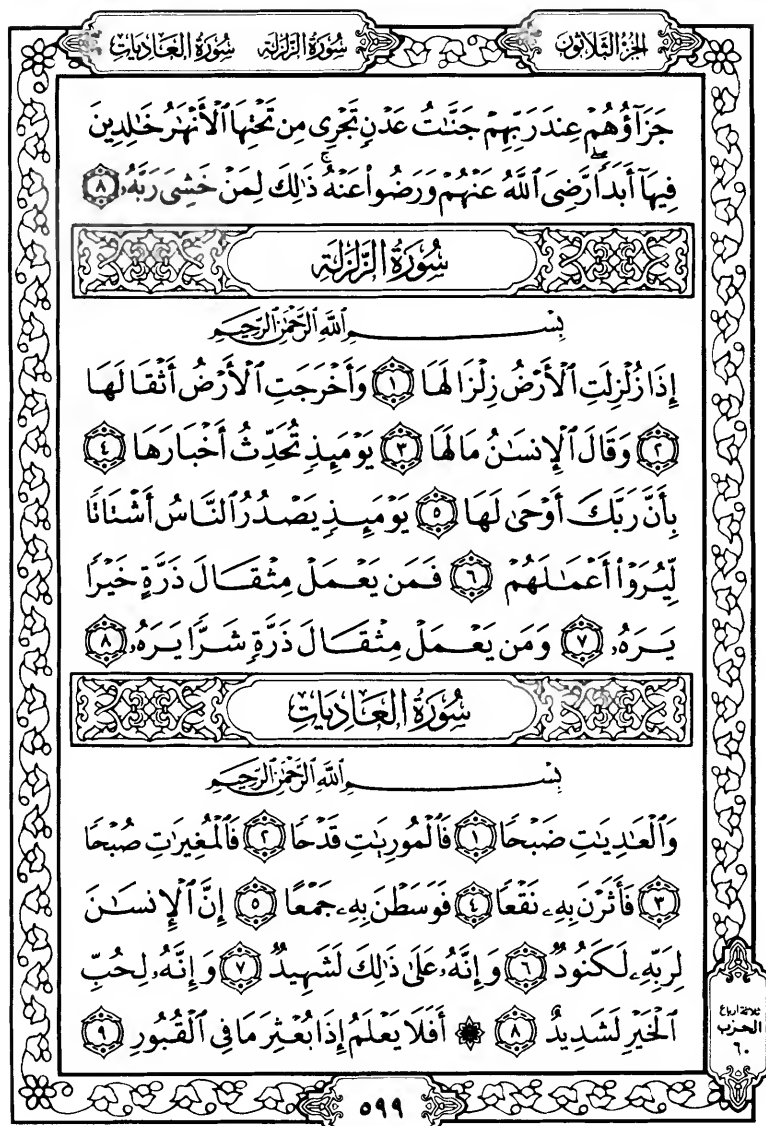 الجزء الثلاثون
سورة الزلزلة سورة العاديات
جَزَآؤُهُمْ عِندَ رَبِّهِمْ جَنَّٰتُ عَدْنٍ تَجْرِى مِن تَحْتِهَا ٱلْأَنْهَٰرُ خَٰلِدِينَ
فِيهَآ أَبَدًاۖ رَّضِىَ ٱللَّهُ عَنْهُمْ وَرَضُوا۟ عَنْهُۚ ذَٰلِكَ لِمَنْ خَشِىَ رَبَّهُۥ ٨
سُورَةُ الزَّلْزَلَةِ
بِسْمِ ٱللَّهِ ٱلرَّحْمَٰنِ ٱلرَّحِيمِ
إِذَا زُلْزِلَتِ ٱلْأَرْضُ زِلْزَالَهَا ١ وَأَخْرَجَتِ ٱلْأَرْضُ أَثْقَالَهَا
٢ وَقَالَ ٱلْإِنسَٰنُ مَا لَهَا ٣ يَوْمَئِذٍ تُحَدِّثُ أَخْبَارَهَا ٤
بِأَنَّ رَبَّكَ أَوْحَىٰ لَهَا ٥ يَوْمَئِذٍ يَصْدُرُ ٱلنَّاسُ أَشْتَاتًا
لِّيُرَوْا۟ أَعْمَٰلَهُمْ ٦ فَمَن يَعْمَلْ مِثْقَالَ ذَرَّةٍ خَيْرًا
يَرَهُۥ ٧ وَمَن يَعْمَلْ مِثْقَالَ ذَرَّةٍ شَرًّا يَرَهُۥ ٨
سُورَةُ العَادِيَاتِ
بِسْمِ ٱللَّهِ ٱلرَّحْمَٰنِ ٱلرَّحِيمِ
وَٱلْعَٰدِيَٰتِ ضَبْحًا ١ فَٱلْمُورِيَٰتِ قَدْحًا ٢ فَٱلْمُغِيرَٰتِ صُبْحًا
٣ فَأَثَرْنَ بِهِۦ نَقْعًا ٤ فَوَسَطْنَ بِهِۦ جَمْعًا ٥ إِنَّ ٱلْإِنسَٰنَ
لِرَبِّهِۦ لَكَنُودٌ ٦ وَإِنَّهُۥ عَلَىٰ ذَٰلِكَ لَشَهِيدٌ ٧ وَإِنَّهُۥ لِحُبِّ
ٱلْخَيْرِ لَشَدِيدٌ ٨ ۞ أَفَلَا يَعْلَمُ إِذَا بُعْثِرَ مَا فِى ٱلْقُبُورِ ٩
ثلاثة أرباع
الحزب
٦٠
٥٩٩